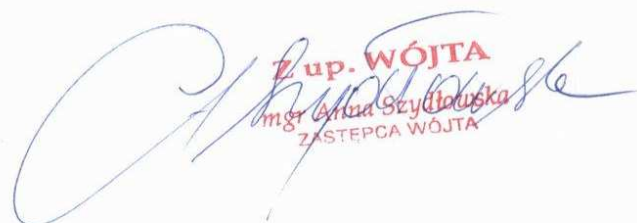 Z up. WÓJTA
mgr Anna Szydłowska
ZASTĘPCA WÓJTA